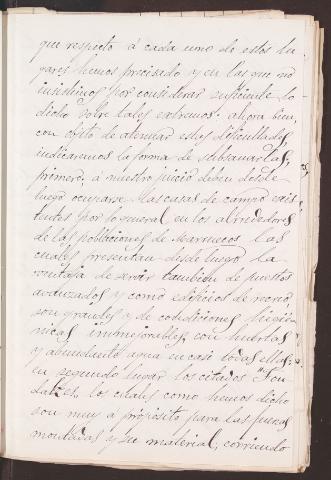 que respecto á cada uno de estos lu
gares hemos precisado y en las que no
insistimos por considerar suficiente lo
dicho sobre tales extremos. ahora bien,
con objeto de atenuar estas dificultades,
indicaremos la forma de subsanarlas;
primero, á nuestro juicio deben desde
luego ocuparse las casas de campo exis
tentes por lo general en los alrededores
de las poblaciones de Marruecos las
cuales presentan desde luego la
ventaja de servir tambien de puestos
avanzados y como edificios de recreo,
son grandes y de condiciones higié-
nicas inmejorables, con huertas
y abundante agua en casi todas ellas;
en segundo lugar los citados "Fon
dakes, los cuales como hemos dicho
son muy á propósito para las fuerzas
montadas y su material, corriendo